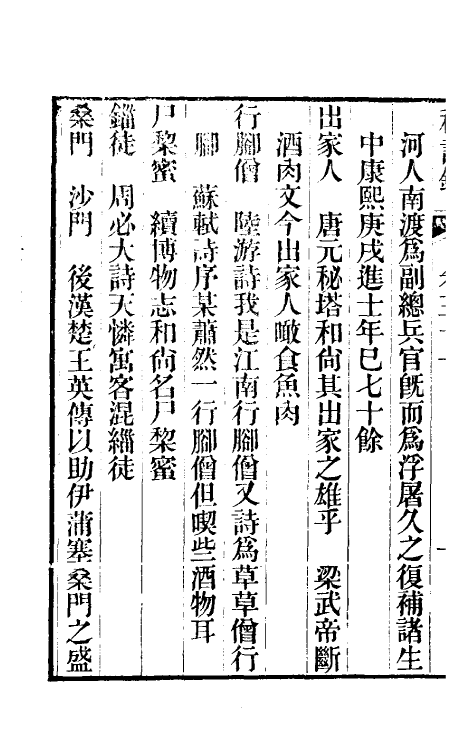 河人南渡爲副總兵官旣而爲浮屠久之復補諸生
中康熙庚戌進士年已七十餘
出家人　唐元秘塔和尙其出家之雄乎　梁武帝斷
酒肉文今出家人噉食魚肉
行腳僧　陸游詩我是江南行腳僧又詩爲草草僧行
腳　蘇軾詩序某蕭然一行腳僧但喫些酒物耳
尸棃蜜　續博物志和尙名尸棃蜜
緇徒　周必大詩天憐寓客混緇徒
桑門　沙門　後漢楚王英傳以助伊蒲塞桑門之盛